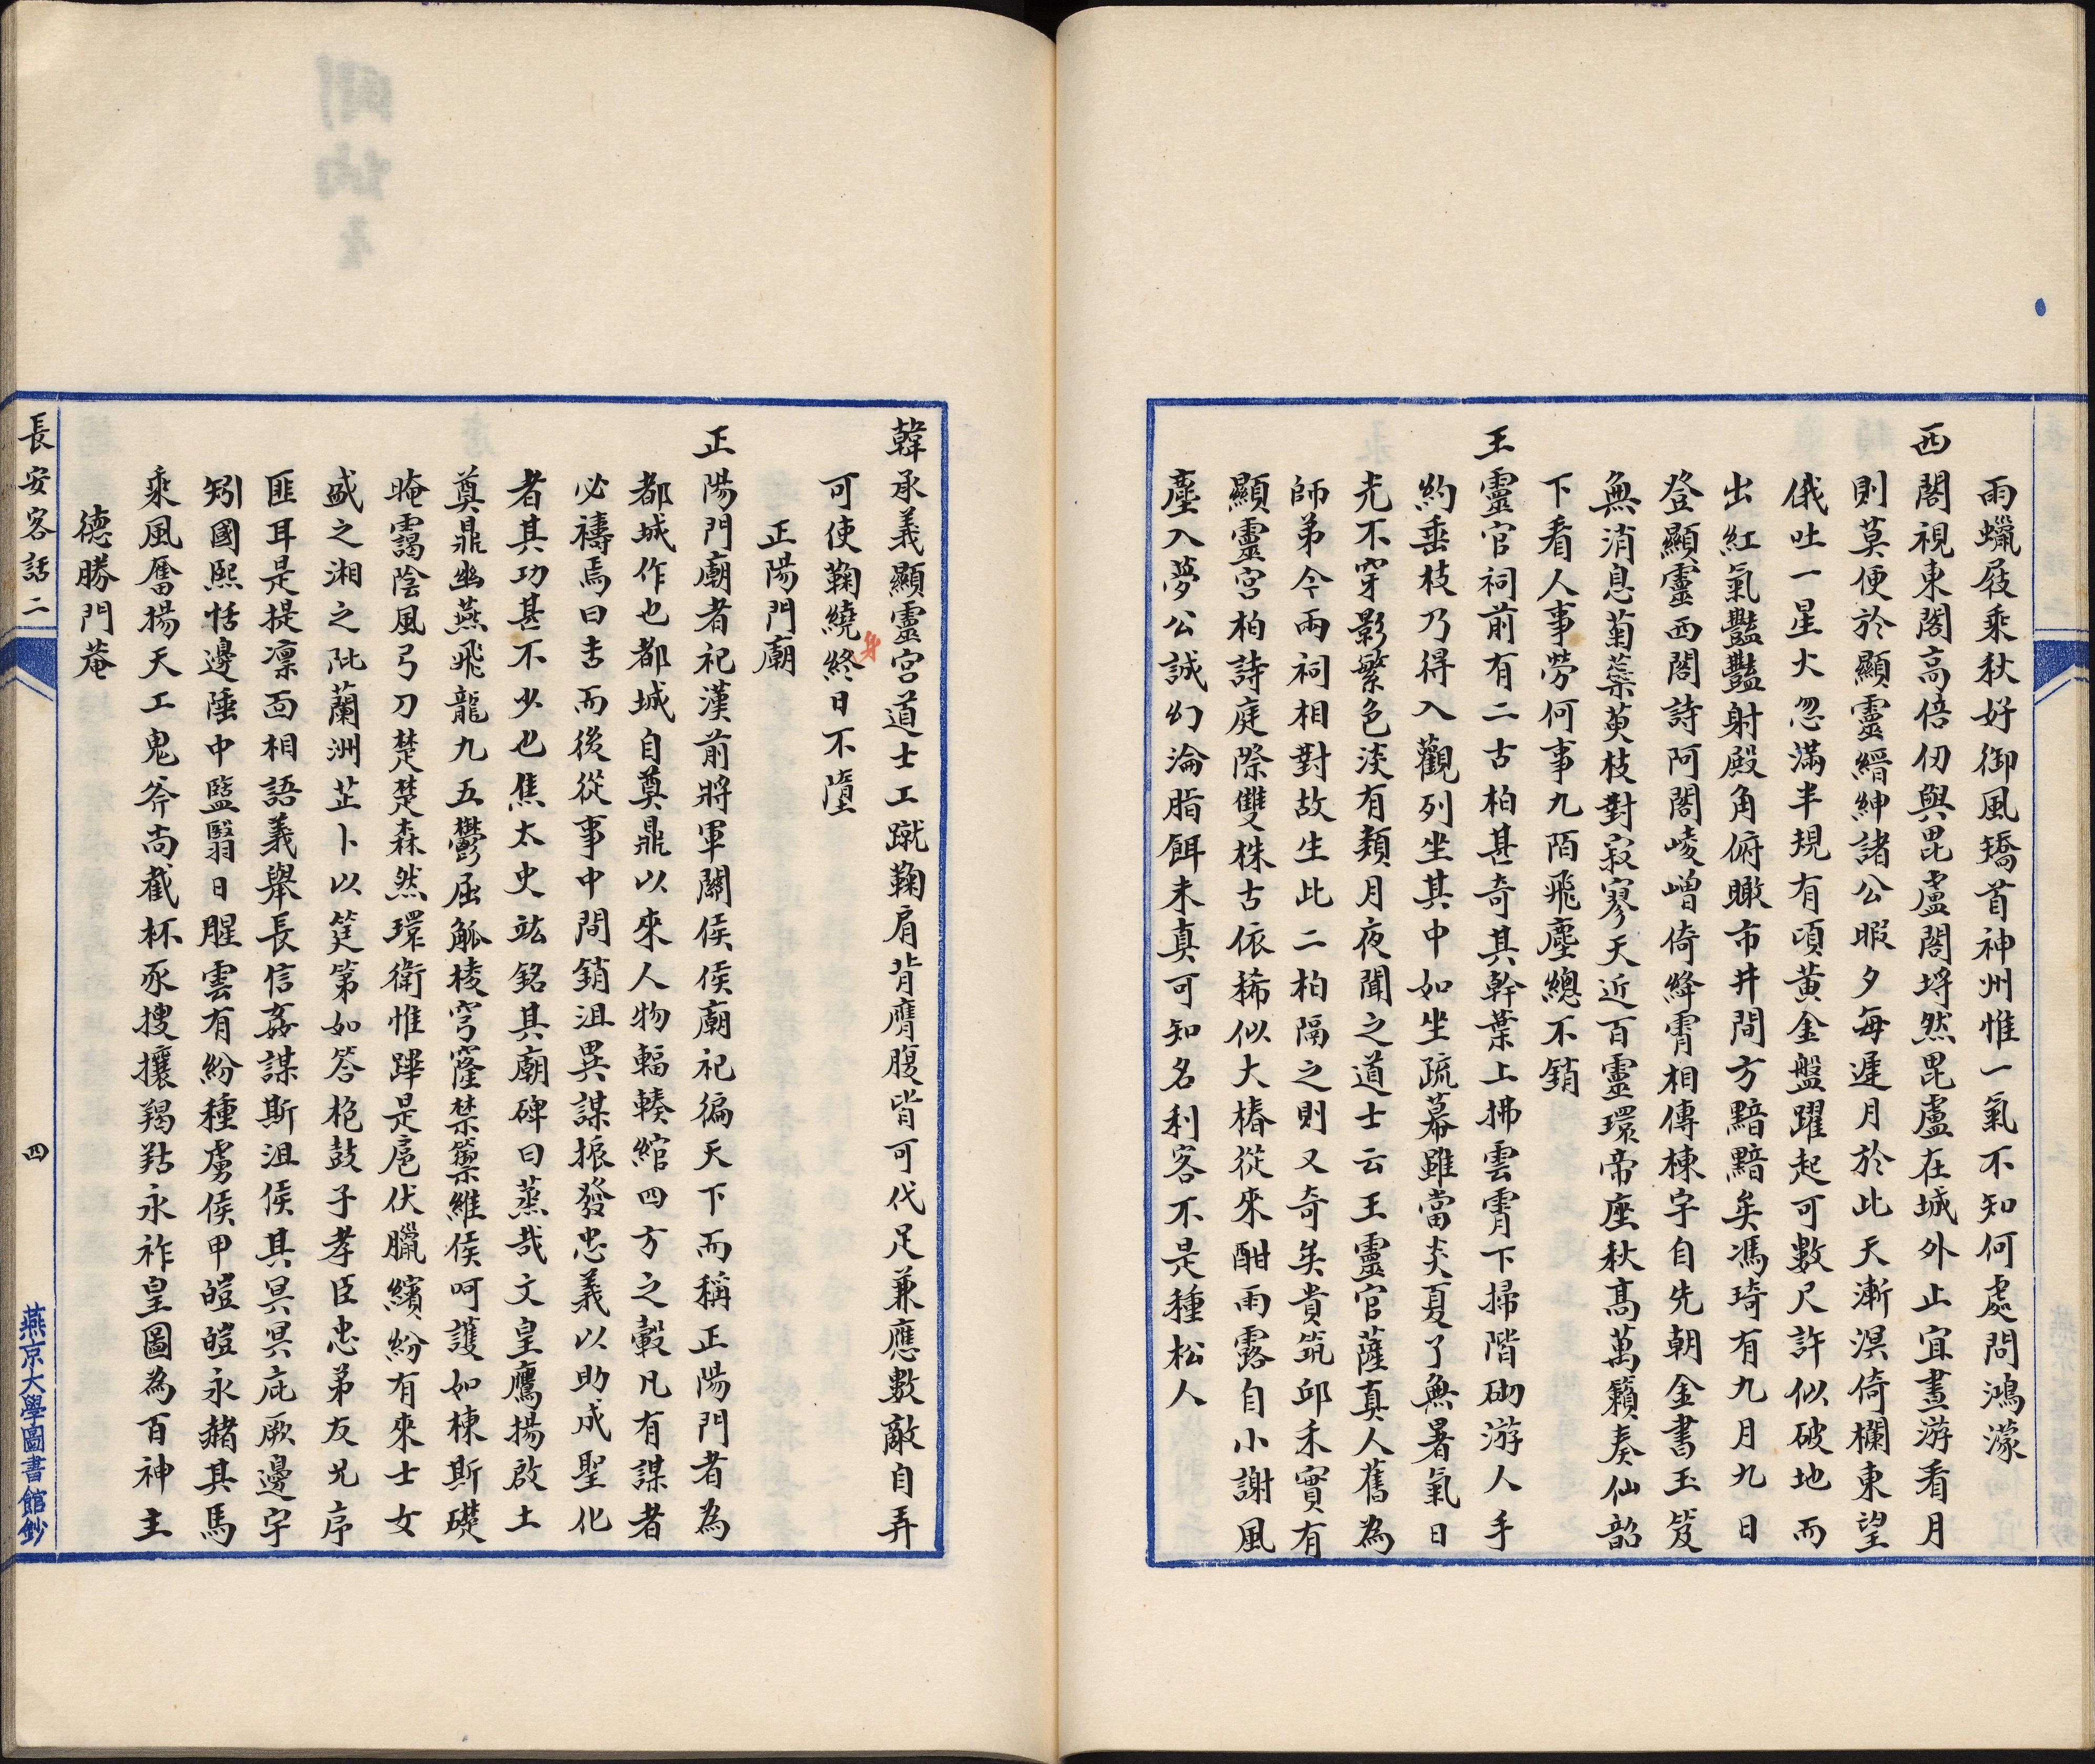 雨蠟屐乘秋好御風矯首神州惟一氣不知何處問鴻濛
西閣視東閣高倍仞與毘盧閣埒然毘盧在城外止宜晝游看月
則莫便於顯靈縉紳諸公暇夕每遲月於此天漸溟倚欄東望
俄吐一星大忽滿半規有頃黃金盤躍起可數尺許似破地而
出紅氣豔豔射殿角俯瞰市井間方黯黯矣馮琦有九月九日
登顯靈西閣詩阿閣崚嶒倚絳霄相傳棟宇自先朝金書玉笈
無消息菊蘂萸枝對寂寥天近百靈環帝座秋高萬籟奏仙韶
下看人事勞何事九陌飛塵總不銷
王靈官祠前有二古柏甚奇其幹葉上拂雲霄下掃階砌游人手
約垂枝乃得入觀列坐其中如坐疏幕雖當炎夏了無暑氣日
光不穿影繁色淡有類月夜聞之道士云王靈官薩真人舊為
師弟今兩祠相對故生此二柏隔之則又奇矣貴筑邱禾實有
顯靈宮柏詩庭際雙株古依稀似大椿從來酣雨露自小謝風
塵入夢公誠幻淪脂餌未真可知名利客不是種松人
韓承義顯靈宮道士工蹴鞠肩背膺腹皆可代足兼應數敵自弄
可使鞠繞身終日不墮
正陽門廟
正陽門廟者祀漢前將軍關侯侯廟祀徧天下而稱正陽門者為
都城作也都城自奠鼎以來人物輻輳綰四方之轂凡有謀者
必禱焉曰吉而後從事中間銷沮異謀振發忠義以助成聖化
者其功甚不少也焦太史竑銘其廟碑曰蒸哉文皇鷹揚啟土
奠鼎幽燕飛龍九五鬱屈觚棱穹窿禁籞維侯呵護如棟斯礎
晻靄陰風弓刀楚楚森然環衛惟蹕是扈伏臘繽紛有來士女
盛之湘之阰蘭洲芷卜以筳第如答枹鼓子孝臣忠弟友兄序
匪耳是提凜面相語義舉長信姦謀斯沮侯其冥冥庇厥邊宇
矧國熙恬邊陲中盬翳日腥雲有紛種虜侯甲皚皚永赭其馬
乘風奮揚天工鬼斧尚截杯豕搜攘羯羖永祚皇圖為百神主
德勝門菴
長安客話二
四
燕京大學圖書館鈔